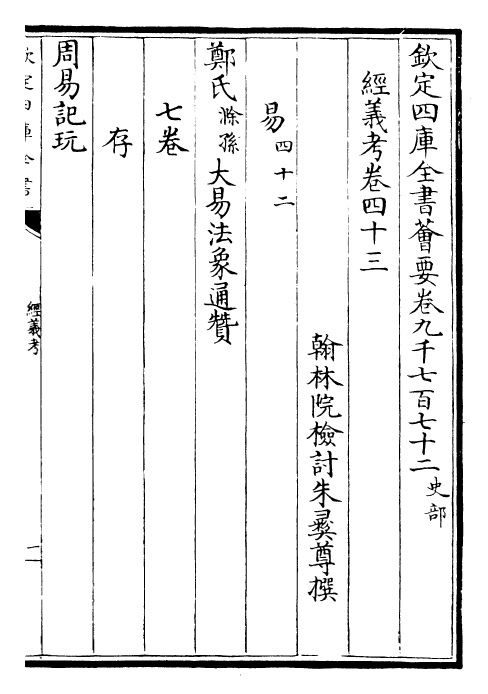 欽定四庫全書薈要卷九千七百七十二史部
經義考卷四十三
翰林院檢討朱彛尊撰
易四十二
鄭氏滁孫大易法象通贊
七卷
存
周易記玩
欽定四庫全書
經義考
一